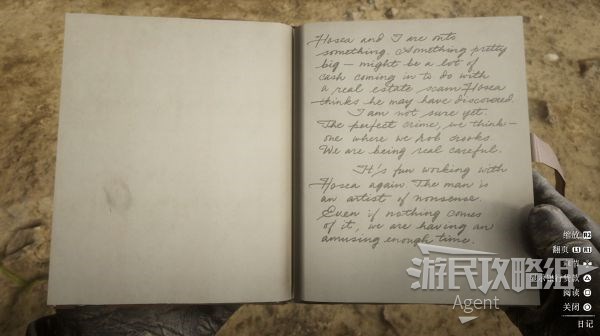 Hosea and I are onto
something. Something pretty
big — might be a lot of
cash coming in to do with
a real estate scam Hosea
thinks he may have discovered.
I am not sure yet.
The perfect crime, we think —
one where we rob crooks.
We are being real careful.
It's fun working with
Hosea again. The man is
an artist of nonsense.
Even if nothing comes
of it, we are having an
amusing enough time.
游民攻略组
Agent
缩放 R2
翻页 L1 R1
阅读
关闭
日记